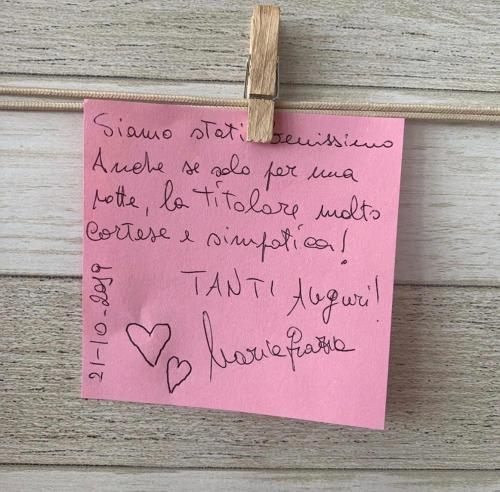 Siamo stati benissimo
Anche se solo per una
notte, la Titolare molto
Cortese e simpatica!
TANTI Auguri!
Mariagrazia
21-10-2019